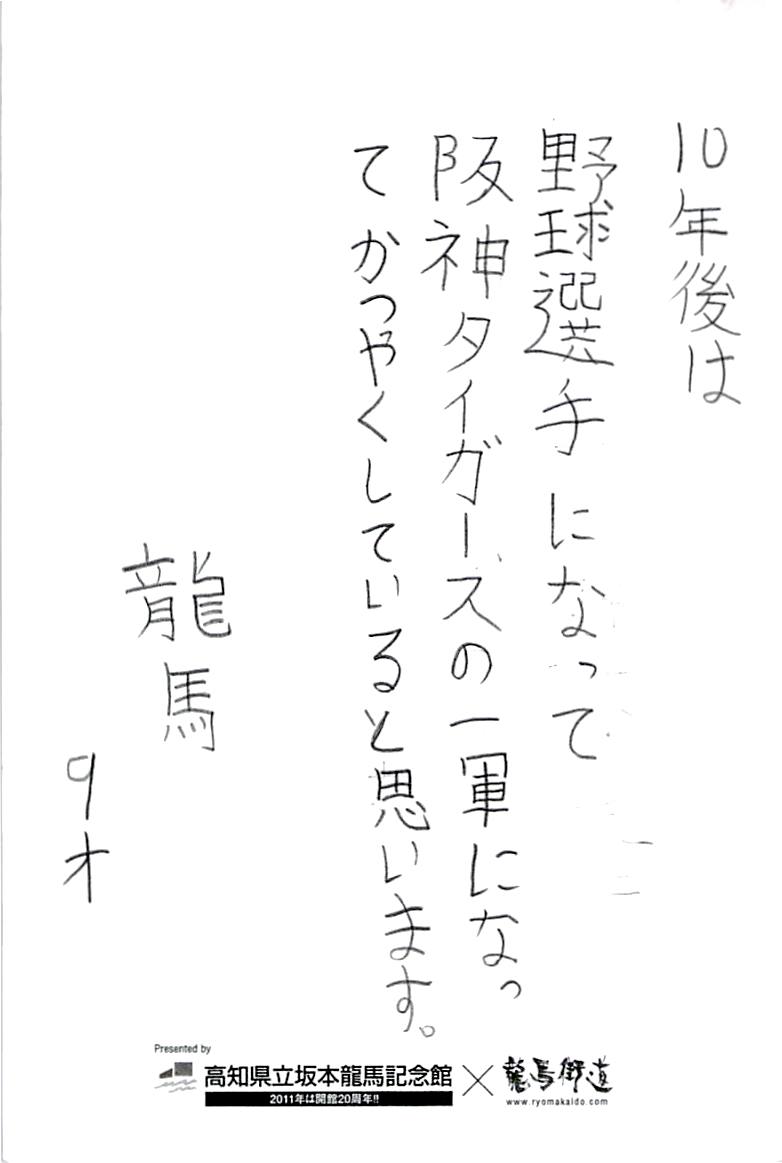 10年後は
野球選手になって
阪神タイガースの一軍になっ
てかつやくしていると思います。
龍馬
9才
Presented by
高知県立坂本龍馬記念館
2011年は開館20周年!!
×
龍馬街道
www.ryomakaido.com